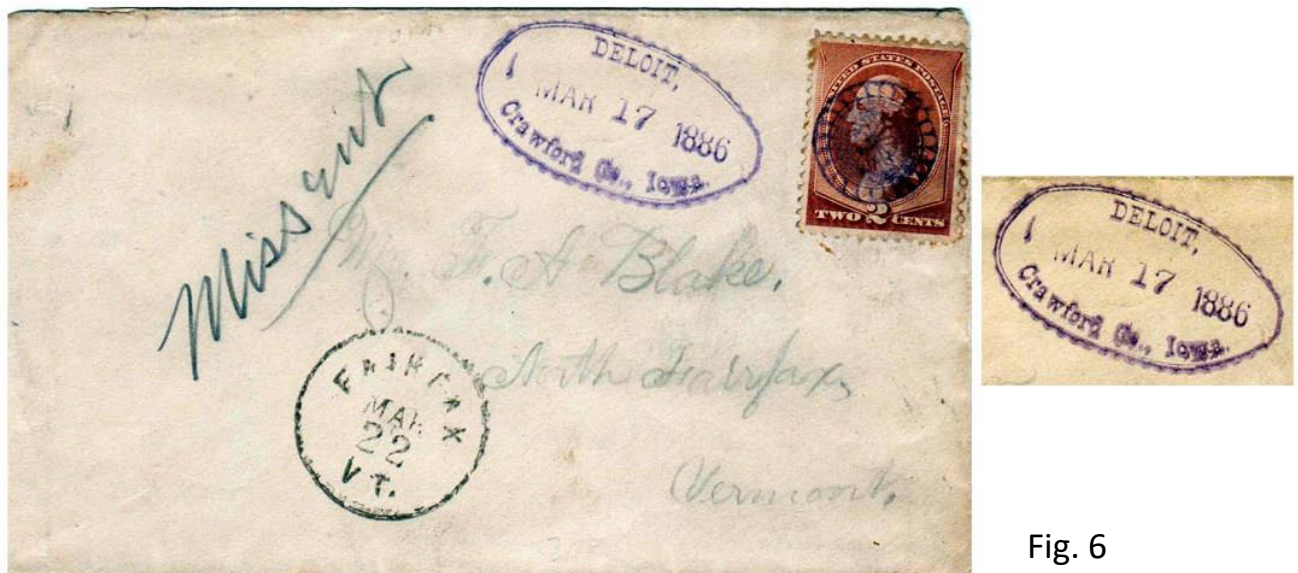 DELOIT,
MAR 17 1886
Crawford Co., Iowa.
UNITED STATES POSTAGE
TWO 2 CENTS
Missent
F. A Blake.
North Fairfax,
Vermont.
FAIRFAX
MAR
22
VT.
DELOIT,
MAR 17 1886
Crawford Co., Iowa.
Fig. 6